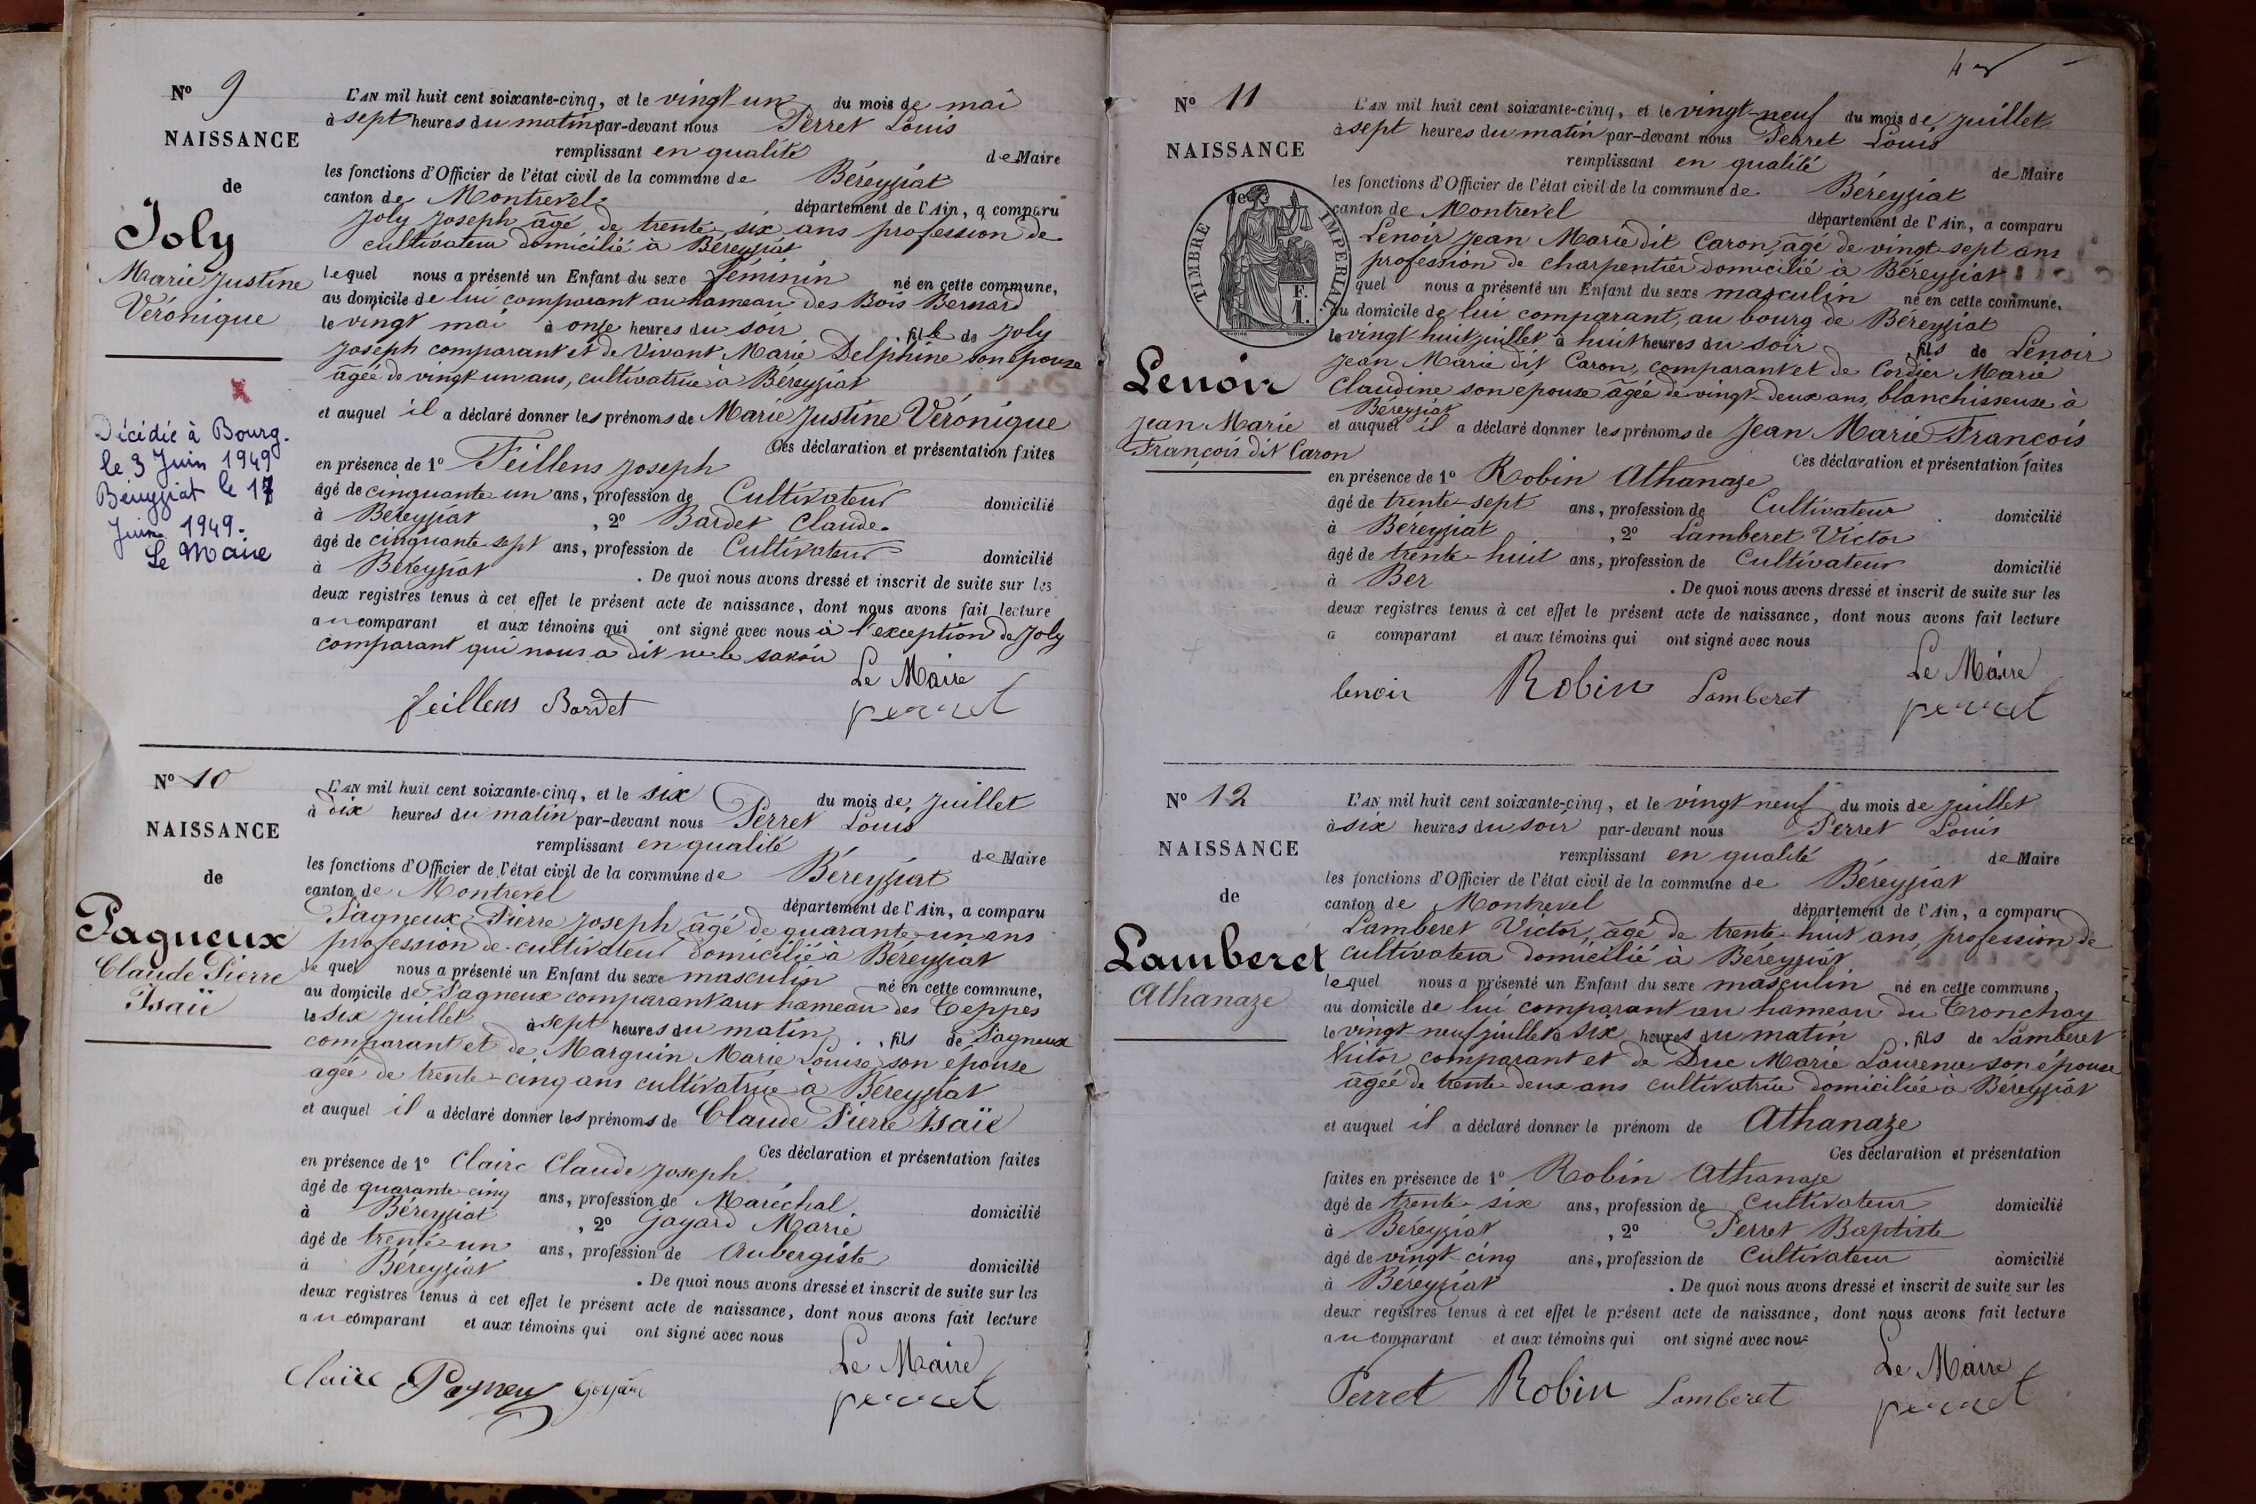 N° 9
NAISSANCE
de
Joly
Marie Justine
Véronique
Décédée à Bourg.
le 3 Juin 1949
Béreyziat le 17
Juin 1949.
Le Maire
L'AN mil huit cent soixante-cinq, et le vingt un du mois de mai
à sept heures du matin par-devant nous Perret Louis
remplissant en qualité de Maire
les fonctions d'Officier de l'état civil de la commune de Béreyziat
canton de Montrevel département de l'Ain, a comparu
Joly Joseph âgé de trente six ans profession de
cultivateur domicilié à Béreyziat
lequel nous a présenté un Enfant du sexe féminin né en cette commune,
au domicile de lui comparant au hameau des Bois Bernard
le vingt mai à onze heures du soir , fille de Joly
Joseph comparant et de Vivant Marie Delphine son épouse
âgée de vingt un ans, cultivatrice à Béreyziat
et auquel il a déclaré donner les prénoms de Marie Justine Véronique
Ces déclaration et présentation faites
en présence de 1° Feillens Joseph
âgé de cinquante un ans, profession de Cultivateur domicilié
à Béreyziat , 2° Bardet Claude
âgé de cinquante sept ans, profession de Cultivateur domicilié
à Béreyziat . De quoi nous avons dressé et inscrit de suite sur les
deux registres tenus à cet effet le présent acte de naissance, dont nous avons fait lecture
au comparant et aux témoins qui ont signé avec nous à l'exception de Joly
comparant qui nous a dit ne le savoir
Le Maire
feillens Bardet perret
N° 10
NAISSANCE
de
Pagneux
Claude Pierre
Isaïe
L'AN mil huit cent soixante-cinq, et le six du mois de juillet
à dix heures du matin par-devant nous Perret Louis
remplissant en qualité de Maire
les fonctions d'Officier de l'état civil de la commune de Béreyziat
canton de Montrevel département de l'Ain, a comparu
Pagneux Pierre Joseph âgé de quarante un ans
profession de cultivateur domicilié à Béreyziat
le quel nous a présenté un Enfant du sexe masculin né en cette commune,
au domicile de Pagneux comparant aux hameau des Teppes
le six juillet à sept heures du matin , fils de Pagneux
comparant et de Marguin Marie Louise son épouse
agée de trente-cinq ans cultivatrice à Béreyziat
et auquel il a déclaré donner les prénoms de Claude Pierre Isaïe
Ces déclaration et présentation faites
en présence de 1° Claire Claude Joseph
âgé de quarante cinq ans, profession de Maréchal domicilié
à Béreyziat , 2° Goyard Marie
âgé de trente un ans, profession de Aubergiste domicilié
à Béreyziat . De quoi nous avons dressé et inscrit de suite sur les
deux registres tenus à cet effet le présent acte de naissance, dont nous avons fait lecture
au comparant et aux témoins qui ont signé avec nous
Le Maire
Claire Pagneux Goyard perret
N° 11
NAISSANCE
de
TIMBRE IMPERIAL
F.
1.
Lenoir
Jean Marie
François dit Caron
L'AN mil huit cent soixante-cinq, et le vingt-neuf du mois de juillet
à sept heures du matin par-devant nous Perret Louis
remplissant en qualité de Maire
les fonctions d'Officier de l'état civil de la commune de Béreyziat
canton de Montrevel département de l'Ain, a comparu
Lenoir Jean Marie dit Caron, âgé de vingt sept ans
profession de charpentier domicilié à Béreyziat
quel nous a présenté un Enfant du sexe masculin né en cette commune,
au domicile de lui comparant, au bourg de Béreyziat
le vingt huit juillet à huit heures du soir , fils de Lenoir
Jean Marie dit Caron, comparant et de Cordier Marie
Claudine son epouse âgée de vingt-deux ans, blanchisseuse à
Béreyziat
et auquel il a déclaré donner les prénoms de Jean Marie François
Ces déclaration et présentation faites
en présence de 1° Robin Athanaze
âgé de trente-sept ans, profession de Cultivateur domicilié
à Béreyziat , 2° Lamberet Victor
âgé de trente-huit ans, profession de Cultivateur domicilié
à Ber . De quoi nous avons dressé et inscrit de suite sur les
deux registres tenus à cet effet le présent acte de naissance, dont nous avons fait lecture
a comparant et aux témoins qui ont signé avec nous
Le Maire
lenoir Robin Lamberet perret
N° 12
NAISSANCE
de
Lamberet
Athanaze
L'AN mil huit cent soixante-cinq, et le vingt neuf du mois de juillet
à six heures du soir par-devant nous Perret Louis
remplissant en qualité de Maire
les fonctions d'Officier de l'état civil de la commune de Béreyziat
canton de Montrevel département de l'Ain, a comparu
Lamberet Victor, âgé de trente-huit ans, profession de
cultivateur domicilié à Béreyziat
lequel nous a présenté un Enfant du sexe masculin né en cette commune,
au domicile de lui comparant au hameau du Tronchay
le vingt-neuf juillet à six heures du matin , fils de Lamberet
Victor comparant et de Duc Marie Laurence son épouse
âgée de trente deux ans cultivatrice domiciliée à Béreyziat
et auquel il a déclaré donner le prénom de Athanaze
Ces déclaration et présentation
faites en présence de 1° Robin Athanaze
âgé de trente-six ans, profession de Cultivateur domicilié
à Béreyziat , 2° Perret Baptiste
âgé de vingt-cinq ans, profession de Cultivateur domicilié
à Béreyziat . De quoi nous avons dressé et inscrit de suite sur les
deux registres tenus à cet effet le présent acte de naissance, dont nous avons fait lecture
au comparant et aux témoins qui ont signé avec nous
Le Maire
Perret Robin Lamberet perret